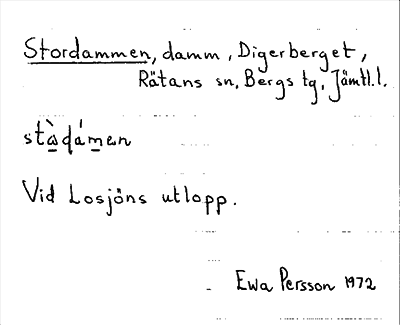 Stordammen, damm, Digerberget,
Rätans sn, Bergs tg, Jämtl.l.
stàdámen
Vid Losjöns utlopp.
Ewa Persson 1972